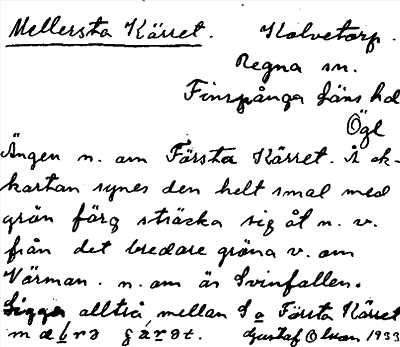 Mellersta Kärret. Kolvetorp.
Regna sn.
Finspånga läns hd
Ögl
Ängen n. om Första Kärret. Å ek-
kartan synes den helt smal med
grön färg sträcka sig åt n. v.
från det bredare gröna v. om
Värman. n. om är Svinfallen.
Ligger alltså mellan S o Första Kärret
Gustaf Olson 1933